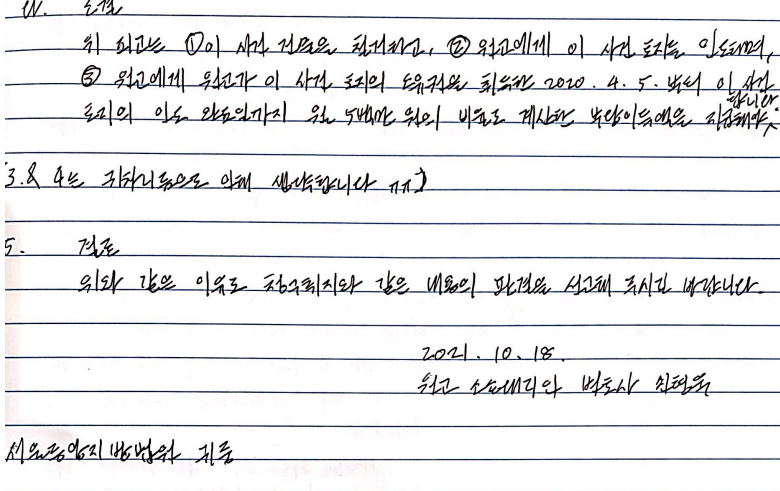 IV. 소결
위 피고는 ① 이 사건 건물을 철거하고, ② 원고에게 이 사건 토지를 인도하며,
③ 원고에게 원고가 이 사건 토지의 소유권을 취득한 2020. 4. 5. 부터 이 사건
토지의 인도 완료일까지 월 5백만 원의 비율로 계산한 부당이득액을 지급해야 합니다.
(3. & 4는 귀차니즘으로 인해 생략합니다 ㅠㅠ)
5. 결론
위와 같은 이유로 청구취지와 같은 내용의 판결을 선고해 주시길 바랍니다.
2021. 10. 18.
원고 소송대리인 변호사
서울중앙지방법원 귀중